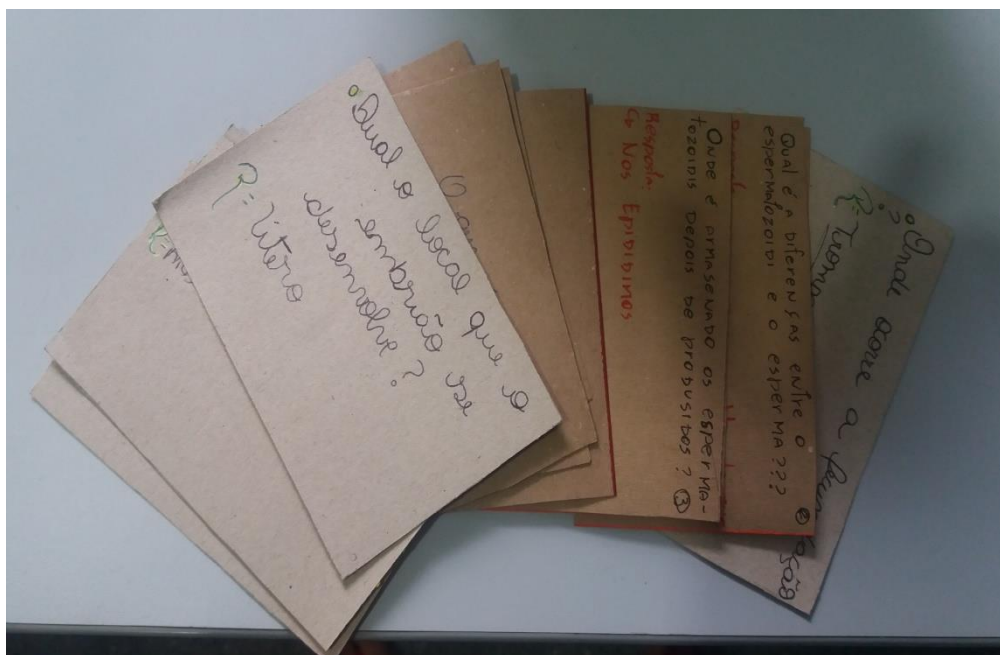 Qual o local que o
embrião se
desenvolve?
R= Útero
Onde é armasenado os esperma-
tozoidis depois de produsidos? 3
Resposta:
Nos Epididimos
Qual é a diferensas entre o
espermatozoidi e o esperma??? 2
Onde ocorre a
R=